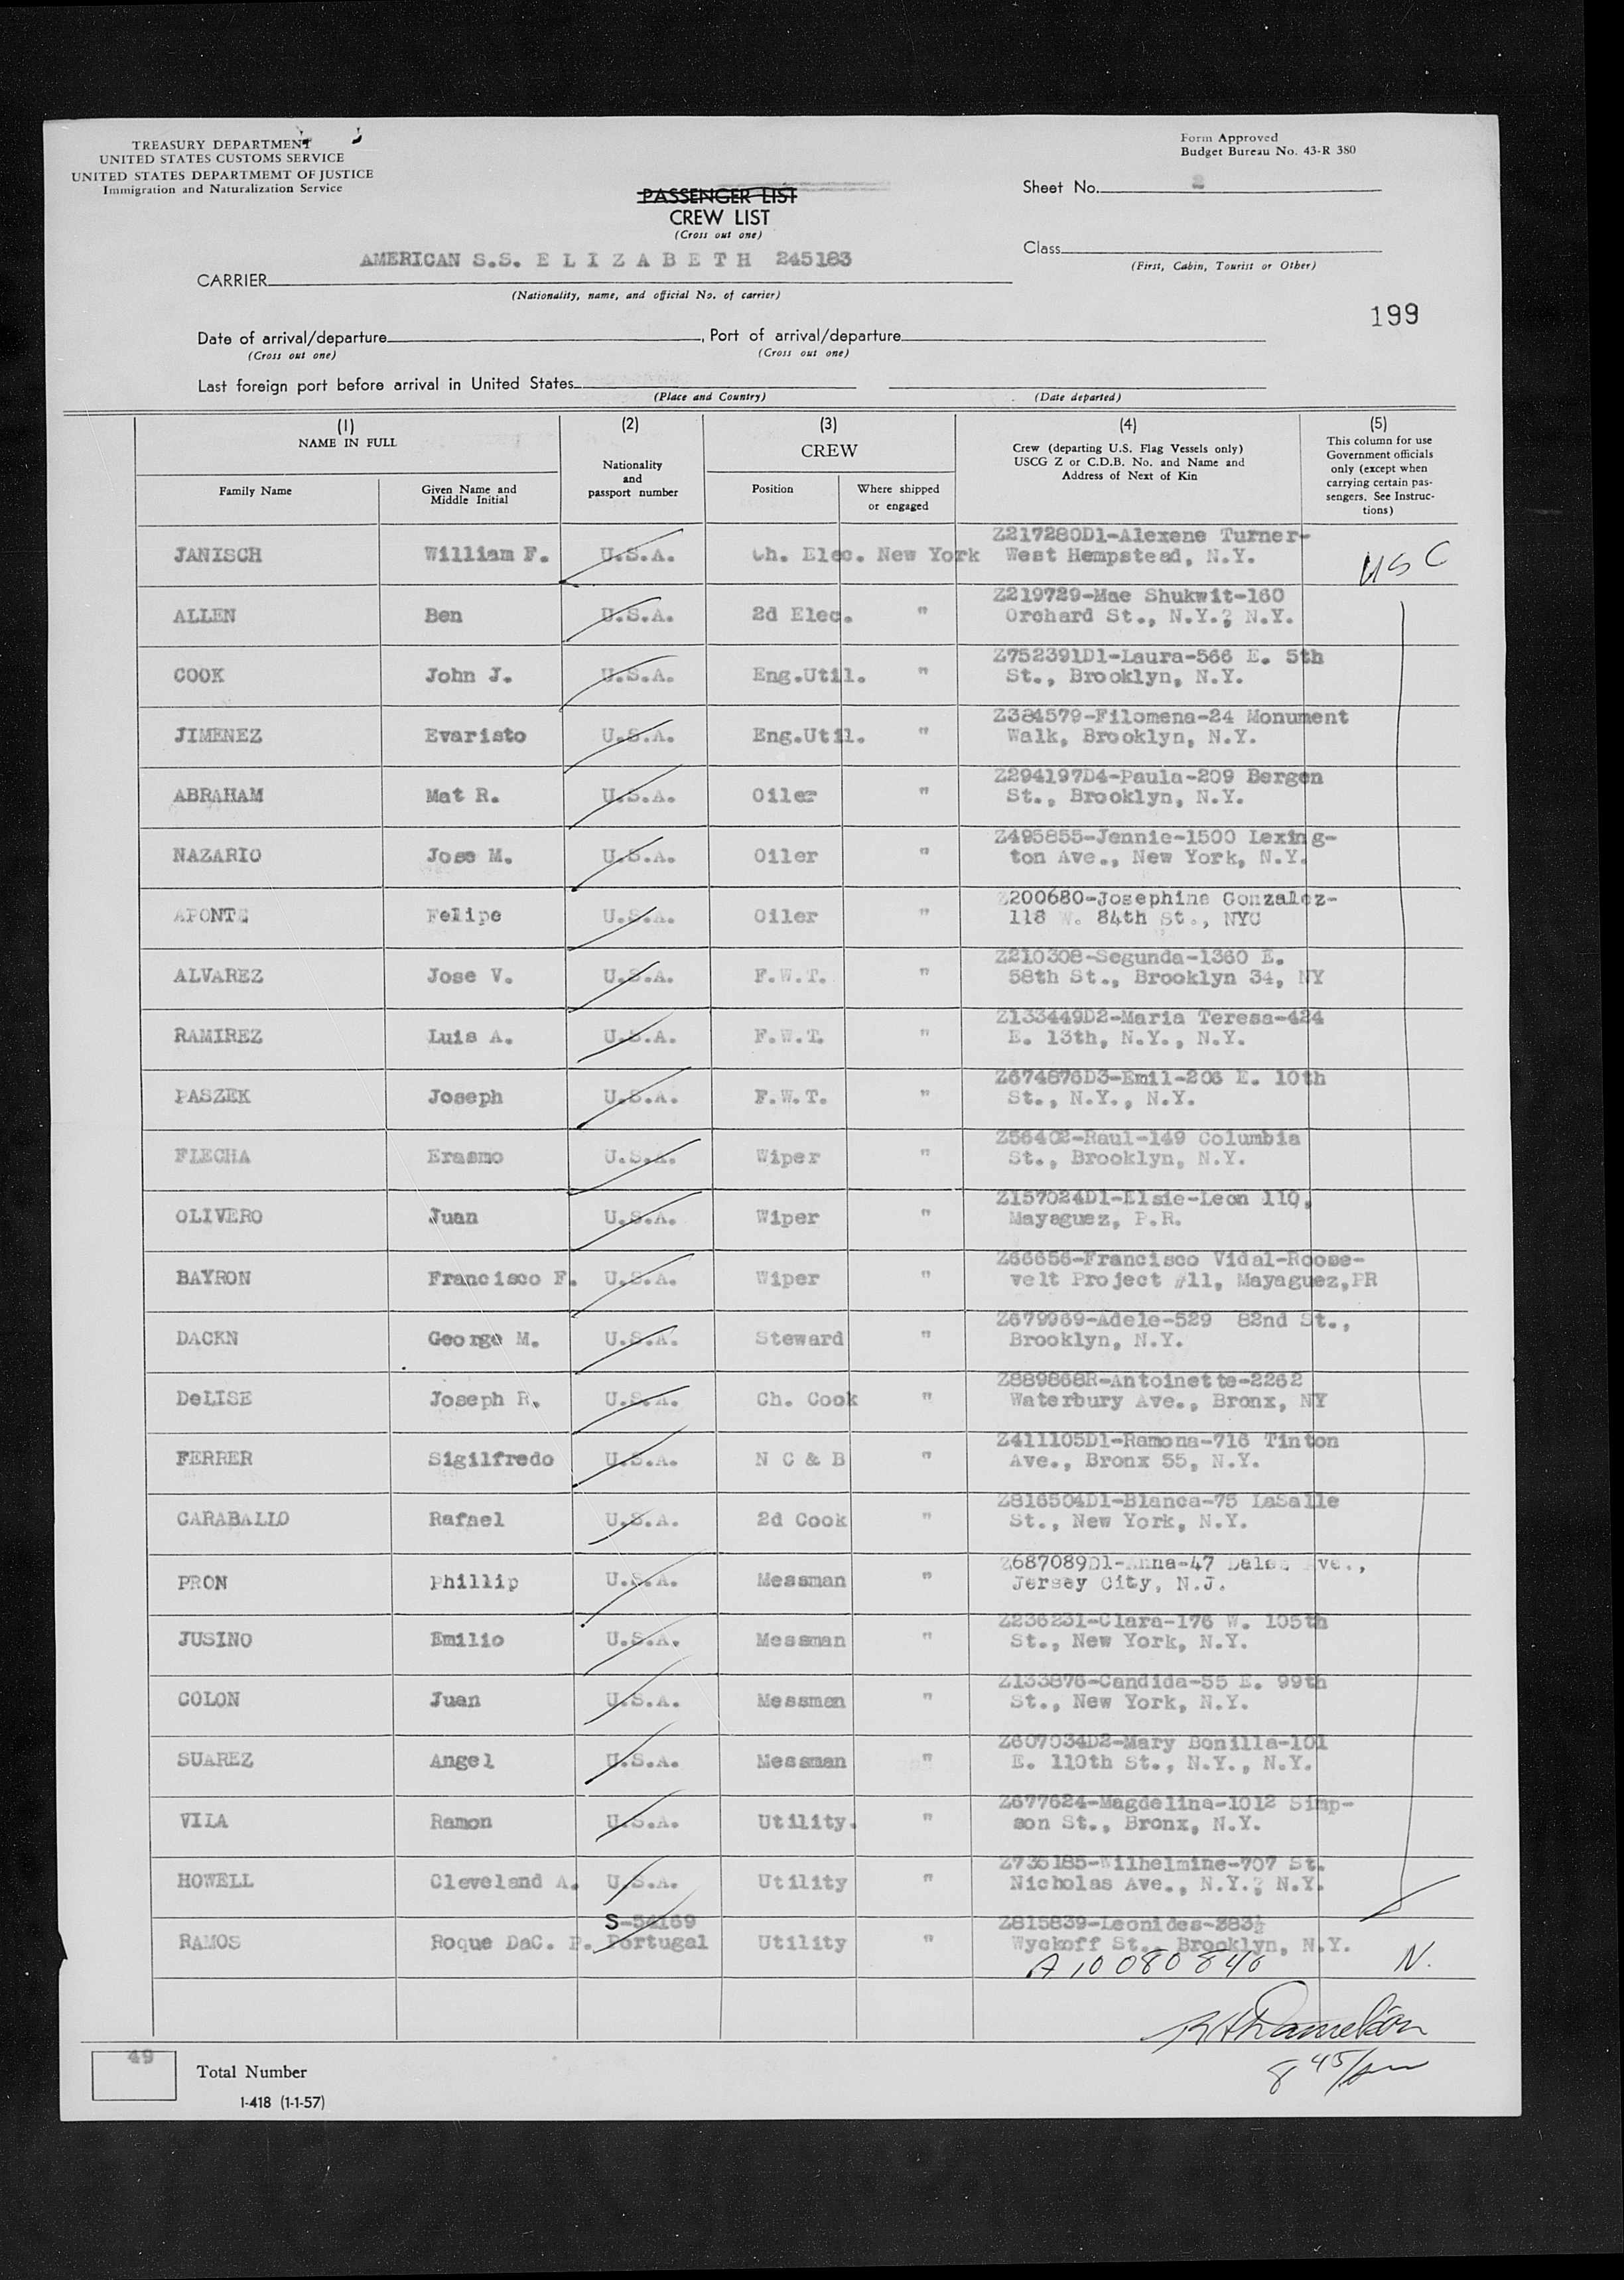 TREASURY DEPARTMENT
UNITED STATES CUSTOMS SERVICE
UNITED STATES DEPARTMEMT OF JUSTICE
Immigration and Naturalization Service
Form Approved
Budget Bureau No. 43-R 380
PASSENGER LIST
CREW LIST
(Cross out one)
Sheet No. 2
Class
(First, Cabin, Tourist or Other)
CARRIER AMERICAN S.S. E L I Z A B E T H 245183
(Nationality, name, and official No. of carrier)
199
Date of arrival/departure , Port of arrival/departure
(Cross out one) (Cross out one)
Last foreign port before arrival in United States
(Place and Country) (Date departed)
(1) NAME IN FULL
Family Name
Given Name and Middle Initial
(2)
Nationality and passport number
(3) CREW
Position
Where shipped or engaged
(4)
Crew (departing U.S. Flag Vessels only)
USCG Z or C.D.B. No. and Name and
Address of Next of Kin
(5)
This column for use
Government officials
only (except when
carrying certain pas-
sengers. See Instruc-
tions)
Z217280D1-Alexene Turner-
JANISCH William F. U.S.A. Ch. Elec. New York West Hempstead, N.Y. USC
Z219729-Mae Shukwit-160
ALLEN Ben U.S.A. 2d Elec. " Orchard St., N.Y.? N.Y.
Z752391D1-Laura-566 E. 5th
COOK John J. U.S.A. Eng.Util. " St., Brooklyn, N.Y.
Z384579-Filomena-24 Monument
JIMENEZ Evaristo U.S.A. Eng.Util. " Walk, Brooklyn, N.Y.
Z294197D4-Paula-209 Bergen
ABRAHAM Mat R. U.S.A. Oiler " St., Brooklyn, N.Y.
Z495855-Jennie-1500 Lexing-
NAZARIO Jose M. U.S.A. Oiler " ton Ave., New York, N.Y.
Z200680-Josephine Gonzalez-
APONTE Felipe U.S.A. Oiler " 118 W. 84th St., NYC
Z210308-Segunda-1360 E.
ALVAREZ Jose V. U.S.A. F.W.T. " 58th St., Brooklyn 34, NY
Z133449D2-Maria Teresa-424
RAMIREZ Luis A. U.S.A. F.W.T. " E. 13th, N.Y., N.Y.
Z674876D3-Emil-206 E. 10th
PASZEK Joseph U.S.A. F.W.T. " St., N.Y., N.Y.
Z56402-Raul-149 Columbia
FLECHA Erasmo U.S.A. Wiper " St., Brooklyn, N.Y.
Z157024D1-Elsie-Leon 110,
OLIVERO Juan U.S.A. Wiper " Mayaguez, P.R.
Z66656-Francisco Vidal-Roose-
BAYRON Francisco F. U.S.A. Wiper " velt Project #11, Mayaguez,PR
Z679969-Adele-529 82nd St.,
DACKN George M. U.S.A. Steward " Brooklyn, N.Y.
Z889868R-Antoinette-2262
DeLISE Joseph R. U.S.A. Ch. Cook " Waterbury Ave., Bronx, NY
Z411105D1-Ramona-716 Tinton
FERRER Sigilfredo U.S.A. N C & B " Ave., Bronx 55, N.Y.
Z816504D1-Blanca-75 LaSalle
CARABALLO Rafael U.S.A. 2d Cook " St., New York, N.Y.
Z687089D1-Anna-47 Ave.,
PRON Phillip U.S.A. Messman " Jersey City, N.J.
Z236231-Clara-176 W. 105th
JUSINO Emilio U.S.A. Messman " St., New York, N.Y.
Z133876-Candida-55 E. 99th
COLON Juan U.S.A. Messman " St., New York, N.Y.
Z607034D2-Mary Bonilla-101
SUAREZ Angel U.S.A. Messman " E. 110th St., N.Y., N.Y.
Z677624-Magdelina-1012 Simp-
VILA Ramon U.S.A. Utility. " son St., Bronx, N.Y.
Z735185-Wilhelmine-707 St.
HOWELL Cleveland A. U.S.A. Utility " Nicholas Ave., N.Y.? N.Y.
S-54169 Z815839-Leonides-383½
RAMOS Roque DaC. P. Portugal Utility " Wyckoff St., Brooklyn, N.Y.
A 10 080 846 N.
8 45/pm
49
Total Number
I-418 (1-1-57)